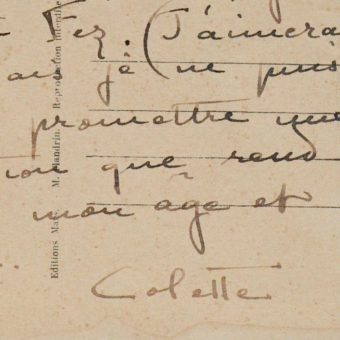 Fez. (J'aimera
ais je ne puis
promettre une
ion que rend
mon âge et
Colette
Editions Ma M. Mandrin. Reproduction interdite